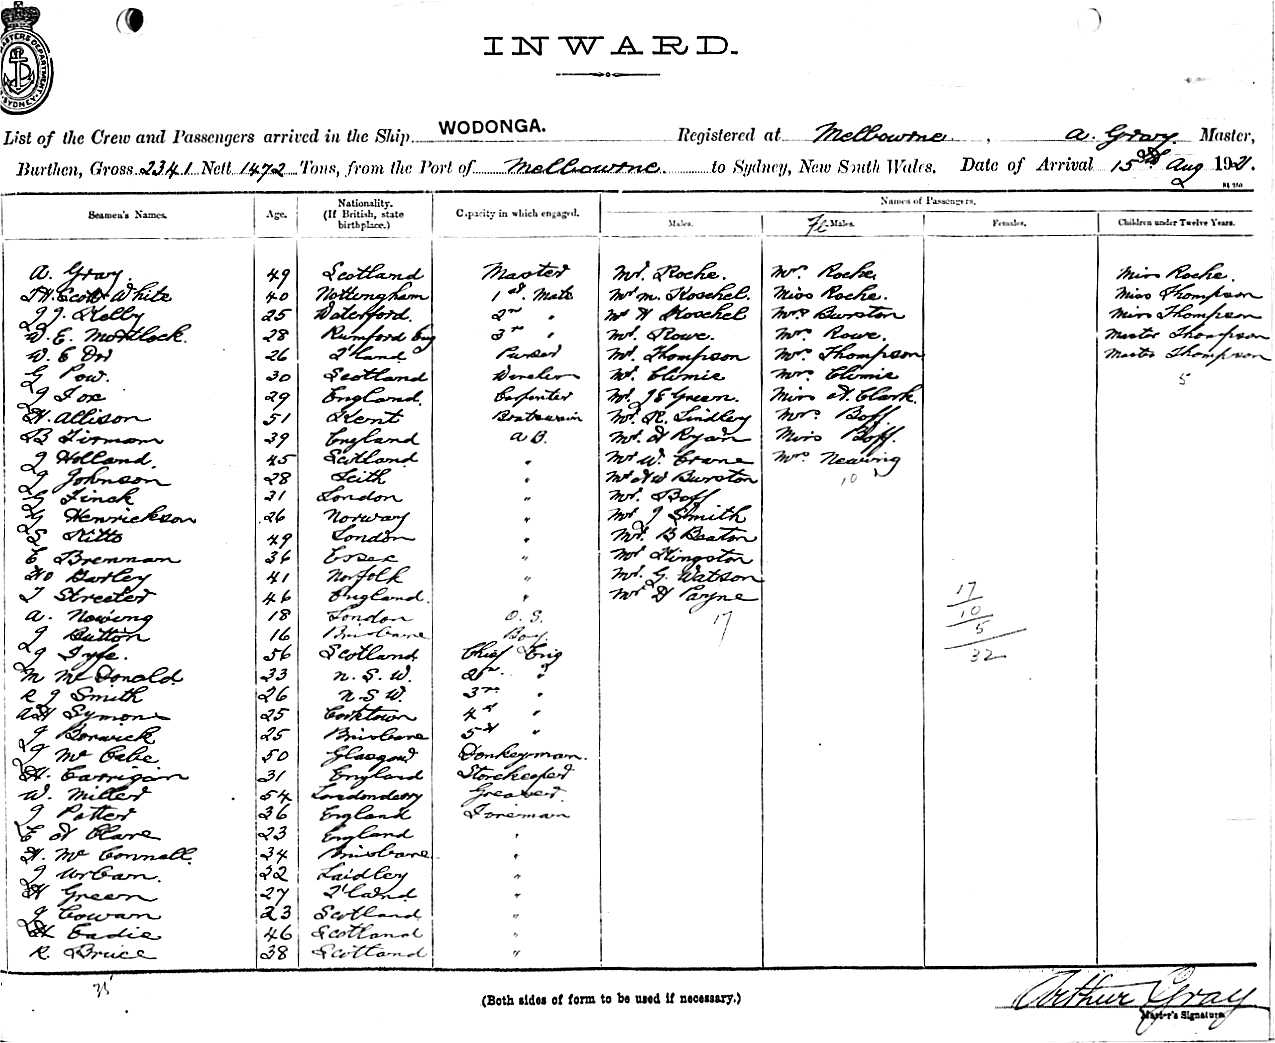 MASTERS DEPARTMENT SYDNEY
INWARD.
List of the Crew and Passengers arrived in the Ship WODONGA. Registered at Melbourne, A. Gray Master,
Burthen, Gross 2341 Nett 1472 Tons, from the Port of Melbourne to Sydney, New South Wales. Date of Arrival 15th Aug 1921.
Names of Passengers.
Seamen's Names. Age. Nationality. (If British, state birthplace.) Capacity in which engaged. Males. Fe Males. Females. Children under Twelve Years.
A. Gray. 49 Scotland Master Mr. Roche. Mrs. Roche. Miss Roche.
Scott White 40 Nottingham 1st. Mate Mr M. Koschel. Miss Roche. Miss Thompson
J. Kelly 25 Waterford. 2nd " Mr H Koschel Mrs Burston Miss Thompson
W. E. Mortlock. 28 Rumford Eng 3rd " Mr. Rowe. Mrs. Rowe. Master Thompson
W. E 26 Q'land Purser Mr. Thompson Mrs. Thompson Master Thompson
G Pow. 30 Scotland Wireless Mr. Climie Mrs. Climie 5
J Fox 29 England. Carpenter Mr. J E Green. Miss H. Clark.
H. Allison 51 Kent Boatswain Mr. R. Lindley Mrs. Boff
B Firman 39 England A B. Mr. H Ryan Miss Boff.
J Holland. 45 Scotland " Mr W. Crane Mrs Newing
J Johnson 28 Leith " Mr H W Burston 10
G Finck 31 London " Mr. Boff
G Henrickson 26 Norway " Mr J Smith
S Kitto 49 London " Mr. B Beaton
E Brennan 36 Essex " Mr Kingston
Wm Barley 41 Norfolk " Mr. G. Watson
T Streeter 46 England. " Mr H Payne 17
A. Nowing 18 London O. S. 17 10
J Button 16 Brisbane Boy. 5
J Fyfe. 56 Scotland Chief Eng 32
M McDonald 33 N. S. W. 2nd. "
R J Smith 26 N S W. 3rd "
A H Symons 25 Cooktown 4th "
J Borwick 25 Brisbane 5th "
J McCabe 50 Glasgow Donkeyman.
H. Carrigan 31 England Storekeeper
W. Miller 54 Londonderry Greaser.
J Potter 36 England Fireman
E H Clare 23 England "
H. McConnell. 34 Brisbane "
J Urban. 22 Laidley "
H Green 27 Q'land "
J Cowan 23 Scotland "
H Eadie 46 Scotland "
R. Bruce 38 Scotland "
35
(Both sides of form to be used if necessary.)
Arthur Gray
Master's Signature